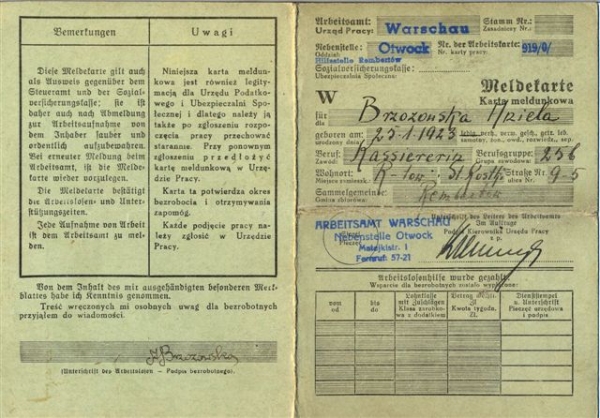 Bemerkungen
Uwagi
Diese Meldekarte gilt auch
als Ausweis gegenüber dem
Steueramt und der Sozial-
versicherungskasse; sie ist
daher auch nach Abmeldung
zur Arbeitsaufnahme von
dem Inhaber sauber und
ordentlich aufzubewahren.
Bei erneuter Meldung beim
Arbeitsamt, ist die Melde-
karte wieder vorzulegen.
Die Meldekarte bestätigt
die Arbeitslosen- und Unter-
stützungszeiten.
Jede Aufnahme von Arbeit
ist dem Arbeitsamt zu mel-
den.
Niniejsza karta meldun-
kowa jest również legity-
macją dla Urzędu Podatko-
wego i Ubezpieczalni Spo-
łecznej i dlatego należy ją
także po zgłoszeniu rozpo-
częcia pracy przechować
starannie. Przy ponownym
zgłoszeniu przedłożyć
kartę meldunkową w Urzę-
dzie Pracy.
Karta ta potwierdza okres
bezrobocia i otrzymywania
zapomóg.
Każde podjęcie pracy na-
leży zgłosić w Urzędzie
Pracy.
Von dem Inhalt des mir ausgehändigten besonderen Merk-
blattes habe ich Kenntnis genommen.
Treść wręczonych mi osobnych uwag dla bezrobotnych
przyjąłem do wiadomości.
Brzozowska
(Unterschrift des Arbeitslosen – Podpis bezrobotnego).
Arbeitsamt: Warschau Stamm Nr.:
Urząd Pracy: Zasadniczy Nr.:
Nebenstelle: Otwock Nr. der Arbeitskarte: 919/0/
Oddział Nr. karty pracy:
Hilfsstelle Rembertów
Sozialversicherungskasse:
Ubezpieczalnia Społeczna:
Meldekarte
Karta meldunkowa
W für Brzozowska
dla
geboren am: 25.1.1923 ledig, verh. verw. gesch. getr. leb.
Beruf: Kassiererin Berufsgruppe: 25b
Zawód: Grupa zawodowa:
Wohnort: Straße Nr. 9-5
Miejsce zam. ulica Nr.
Sammelgemeine Rembertów
Gmina zbiorowa:
Unterschrift des Leiters des Arbeitsamts
Im Auftrage
Podpis Kierownika Urzędu Pracy
z p.
ARBEITSAMT WARSCHAU
Nebenstelle Otwock
Matejkistr. 1
Fernruf: 57-21
Arbeitslosenhilfe wurde gezahlt
Wsparcie dla bezrobotnych zostało wypłacone:
vom
od
bis
do
Lohnklasse
mit Zuschlägen
Klasa zarobko-
wa z dodatkiem
Betrag
Zl.
Kwota tygodn.
Zł.
Dienststempel
u. Unterschrift
Pieczęć urzędowa
i podpis.